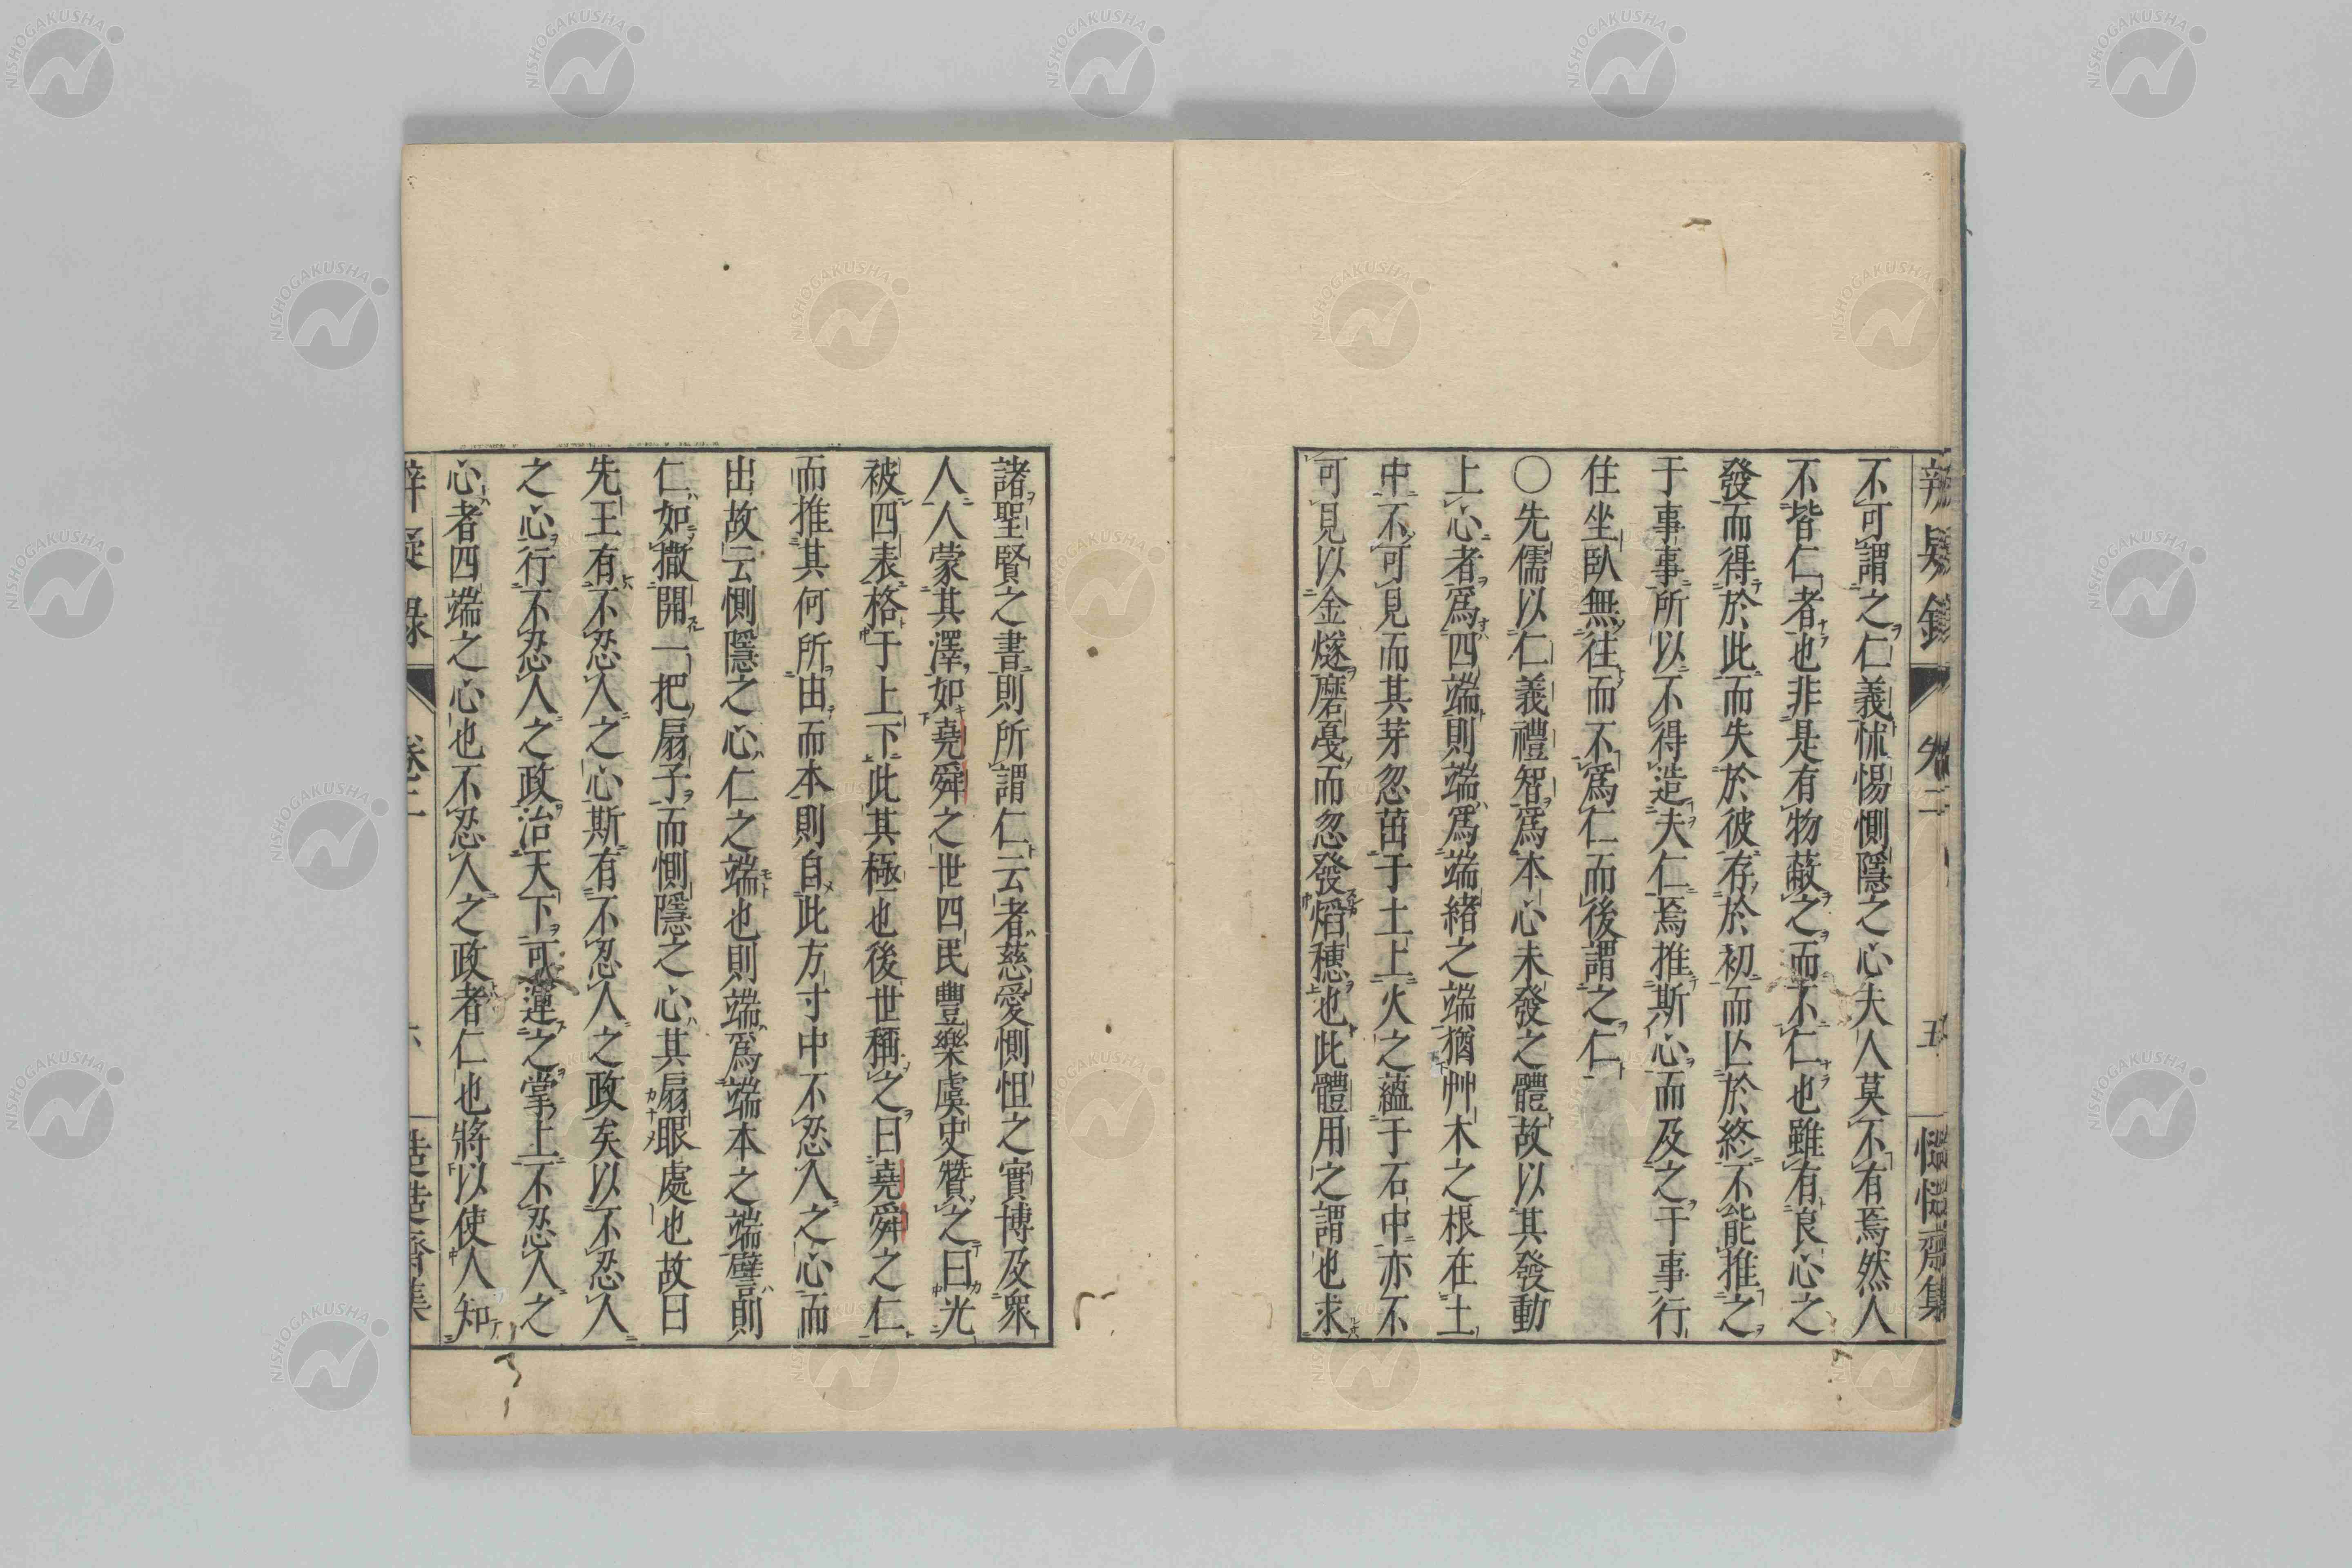 辨疑錄 卷二 五 慥慥齋集
不可謂之仁義怵惕惻隱之心夫人莫不有焉然人
不皆仁者也非是有物蔽之而不仁也雖有良心之
發而得於此而失於彼存於初而亾於終不能推之
于事事所以不得造夫仁焉推斯心而及之于事行
住坐臥無往而不爲仁而後謂之仁
〇先儒以仁義禮智爲本心未發之體故以其發動
上心者爲四端則端爲端緒之端猶艸木之根在土
中不可見而其芽忽茁于土上火之蘊于石中亦不
可見以金燧磨戞而忽發熖穗也此體用之謂也求
諸聖賢之書則所謂仁云者慈愛惻怛之實博及衆
人人蒙其澤如堯舜之世四民豐樂虞史贊之曰光
被四表格于上下此其極也後世稱之曰堯舜之仁
而推其何所由而本則自此方寸中不忍人之心而
出故云惻隱之心仁之端也則端爲端本之端譬則
仁如撒開一把扇子而惻隱之心其扇眼處也故曰
先王有不忍人之心斯有不忍人之政矣以不忍人
之心行不忍人之政治天下可運之掌上不忍人之
心者四端之心也不忍人之政者仁也將以使人知
辨疑錄 卷二 慥慥齋集
NISHOGAKUSHA